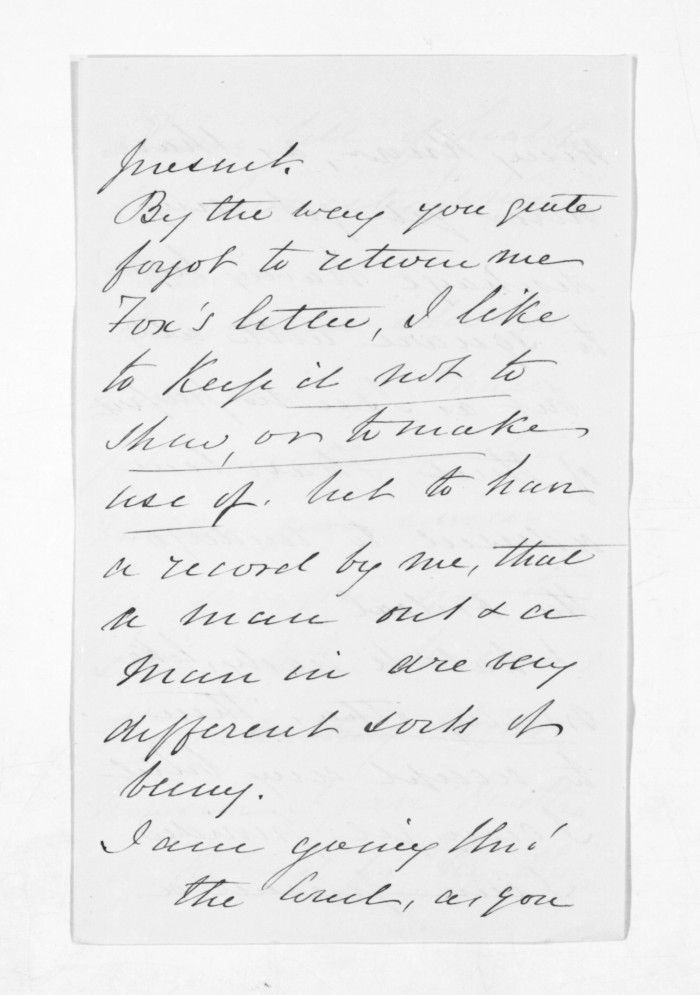 present.
By the way you quite
forgot to return me
Fox's letter, I like
to keep it not to
shew, or to make
use of. but to have
a record by me, that
a man out & a
man in are very
different sorts of
being.
I am going thro'
the Court, as you